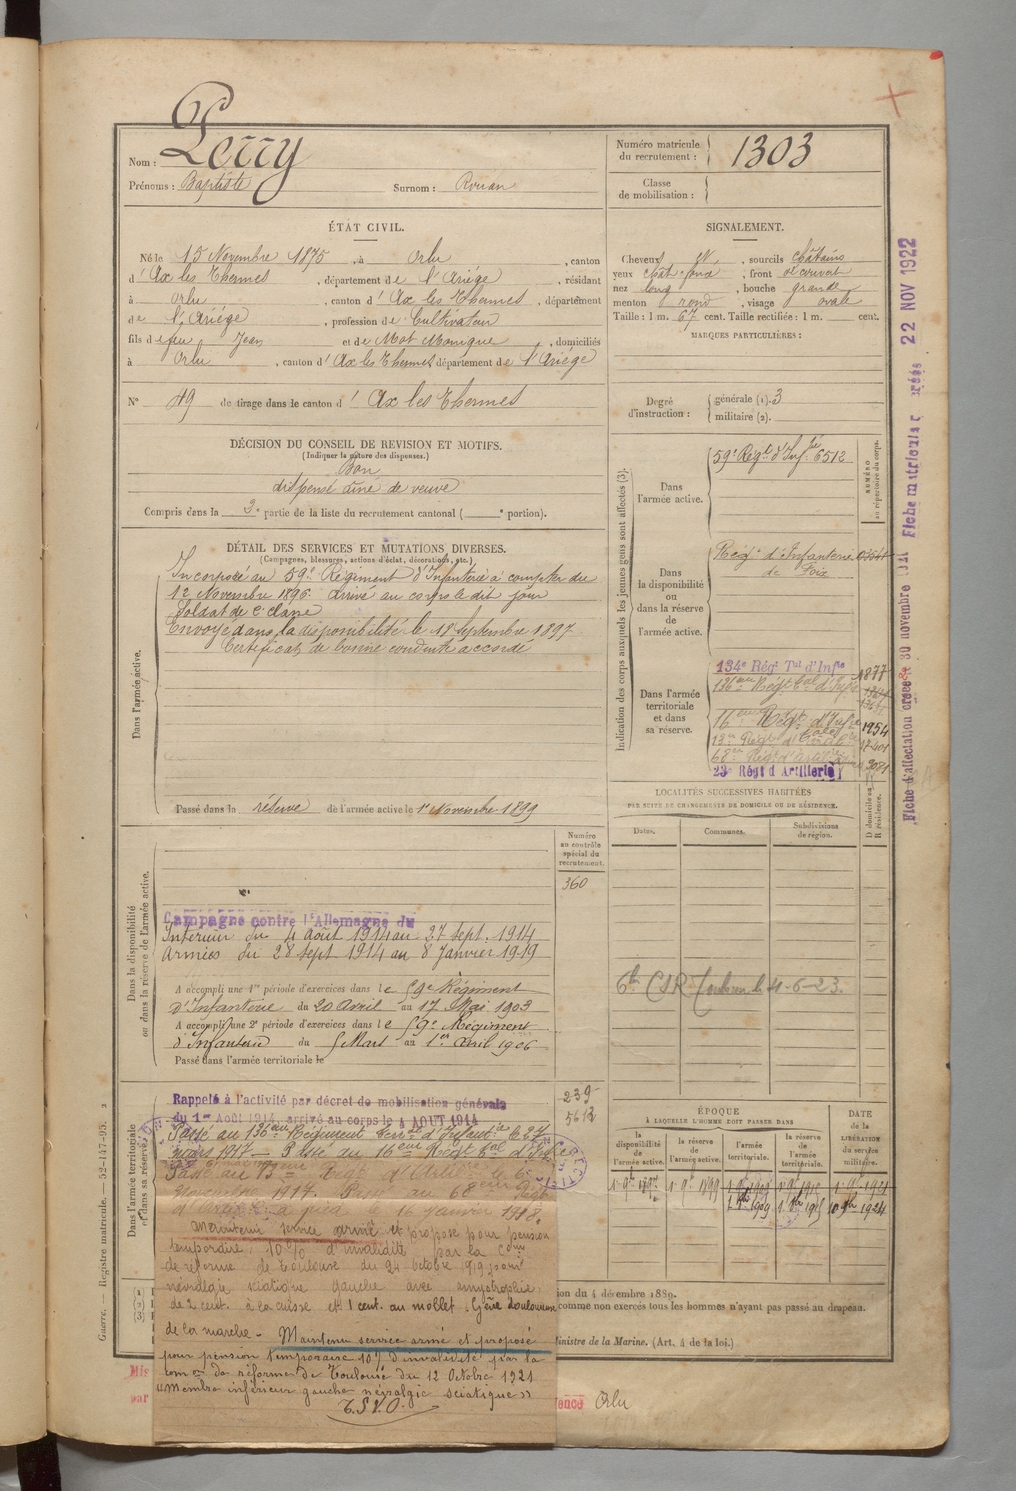 Nom : Perry
Prénoms : Baptiste Surnom : Rouan
Numéro matricule du recrutement : 1303
Classe de mobilisation :
ÉTAT CIVIL.
Né le 15 Novembre 1875, à Orlu, canton
d'Ax les Thermes, département de l'Ariège, résidant
à Orlu, canton d'Ax les Thermes, département
de l'Ariège, profession de Cultivateur
fils de feu Jean et de Mot Monique, domiciliés
à Orlu, canton d'Ax les Thermes département de l'Ariège
N° 49 de tirage dans le canton d'Ax les Thermes
SIGNALEMENT.
Cheveux , sourcils châtains
yeux , front découvert
nez long, bouche grande
menton rond, visage ovale
Taille : 1 m. 67 cent. Taille rectifiée : 1 m. cent.
MARQUES PARTICULIÈRES :
Degré d'instruction : générale (1). 3
militaire (2).
DÉCISION DU CONSEIL DE REVISION ET MOTIFS.
(Indiquer la nature des dispenses.)
Bon
dispensé aîné de veuve
Compris dans la 3e partie de la liste du recrutement cantonal ( e portion).
DÉTAIL DES SERVICES ET MUTATIONS DIVERSES.
(Campagnes, blessures, actions d'éclat, décorations, etc.)
Dans l'armée active.
Incorporé au 59e Régiment d'Infanterie à compter du
12 Novembre 1896. Arrivé au corps le dit jour
Soldat de 2e classe
Envoyé dans la disponibilité le 18 Septembre 1897
Certificat de bonne conduite accordé
Passé dans la réserve de l'armée active le 1er Novembre 1899
Indication des corps auxquels les jeunes gens sont affectés (3).
NUMÉRO au répertoire du corps.
Dans l'armée active.
59e Régt d'Infrie 6512
Dans la disponibilité ou dans la réserve de l'armée active.
Régt d'Infanterie
de Foix
Dans l'armée territoriale et dans sa réserve.
134e Régt Tal d'Infie 1877
136eme Régt Tal d'Infie
16eme Régt d'Infie 1954
13e Régt d'Artillerie
68e Régt d'Artillerie
23e Régt d'Artillerie
LOCALITÉS SUCCESSIVES HABITÉES
PAR SUITE DE CHANGEMENTS DE DOMICILE OU DE RÉSIDENCE.
Dates. Communes. Subdivisions de région. D domicile ou R résidence.
Fiche d'affectation créée 30 novembre Fiche matricule créée 22 NOV 1922
Dans la disponibilité ou dans la réserve de l'armée active.
Numéro au contrôle spécial du recrutement.
360
Campagne contre l'Allemagne du
Intérieur du 4 août 1914 au 27 sept. 1914
Armées du 28 sept 1914 au 8 Janvier 1919
A accompli une 1re période d'exercices dans le 59e Régiment
d'Infanterie du 20 Avril au 17 Mai 1903
A accompli une 2e période d'exercices dans le 59e Régiment
d'Infanterie du 5 Mars au 1er avril 1906
Passé dans l'armée territoriale le
Dans l'armée territoriale et dans sa réserve.
239
5612
Rappelé à l'activité par décret de mobilisation générale
du 1er Août 1914, arrivé au corps le 4 AOUT 1914
Passé au 136eme Régiment Terr. d'Infanterie le 27
mars 1917 — Passe au 16eme Régt Tal d'Infie
Passé au 13eme Régt d'Artie le 6
Novembre 1917. Passé au 68eme Régt
d'Artie à pied le 16 janvier 1918.
Maintenu service armé et proposé pour pension
temporaire 10% d'invalidité par la Com
de réforme de Toulouse du 24 octobre 1919 pour
névralgie sciatique gauche avec amyotrophie
de 2 cent. à la cuisse et 1 cent. au mollet. Gêne douloureuse
de la marche - Maintenu service armé et proposé
pour pension temporaire 10% d'invalidité par la
Com on de réforme de Toulouse du 12 Octobre 1921
"Membre inférieur gauche névralgie sciatique"
T.S.V.P.
ÉPOQUE
À LAQUELLE L'HOMME DOIT PASSER DANS
DATE DE LA LIBÉRATION DU service militaire.
la disponibilité de l'armée active. la réserve de l'armée active. l'armée territoriale. la réserve de l'armée territoriale.
ion du 4 décembre 1889.
comme non exercés tous les hommes n'ayant pas passé au drapeau.
Ministre de la Marine. (Art. 4 de la loi.)
Mis
par
ence Orlu
Guerre. — Registre matricule. — 52-147-95.